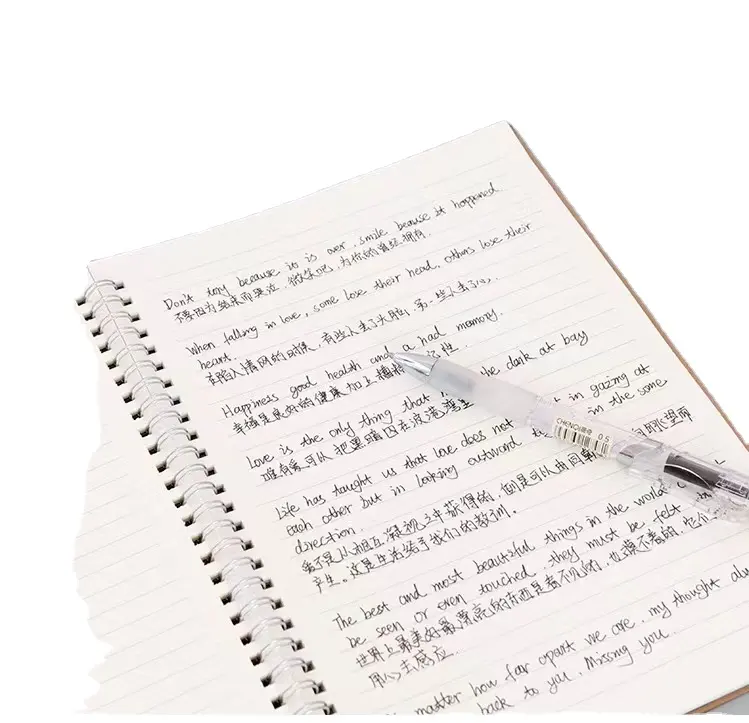 Don't because it is over, smile because it happened.
不要因为结束而哭泣，微笑吧，为你的曾经拥有.
When falling in love, some lose their head, others lose their
heart.
在陷入情网的时候，有些人丢了大脑，另一些人丢了心。
Happiness good health and a had memory.
幸福是良好的健康加上糟 性.
Love is the only thing that the dark at bay
唯有爱可以把黑暗囚在
Life has taught us that love does not in gazing at
each other but in looking outward in the same
direction.
爱不是从相互凝视之中获得的，但是可以由同 的眺望而
产生。这是生活给予我们的教训。
The best and most beautiful things in the world
be seen or even touched, they must be felt
世界上最美好最漂亮的东西是看不见的，也摸不着的，它们
用心去感应.
matter how far apart we are, my thought
back to you, Missing you.
0.5